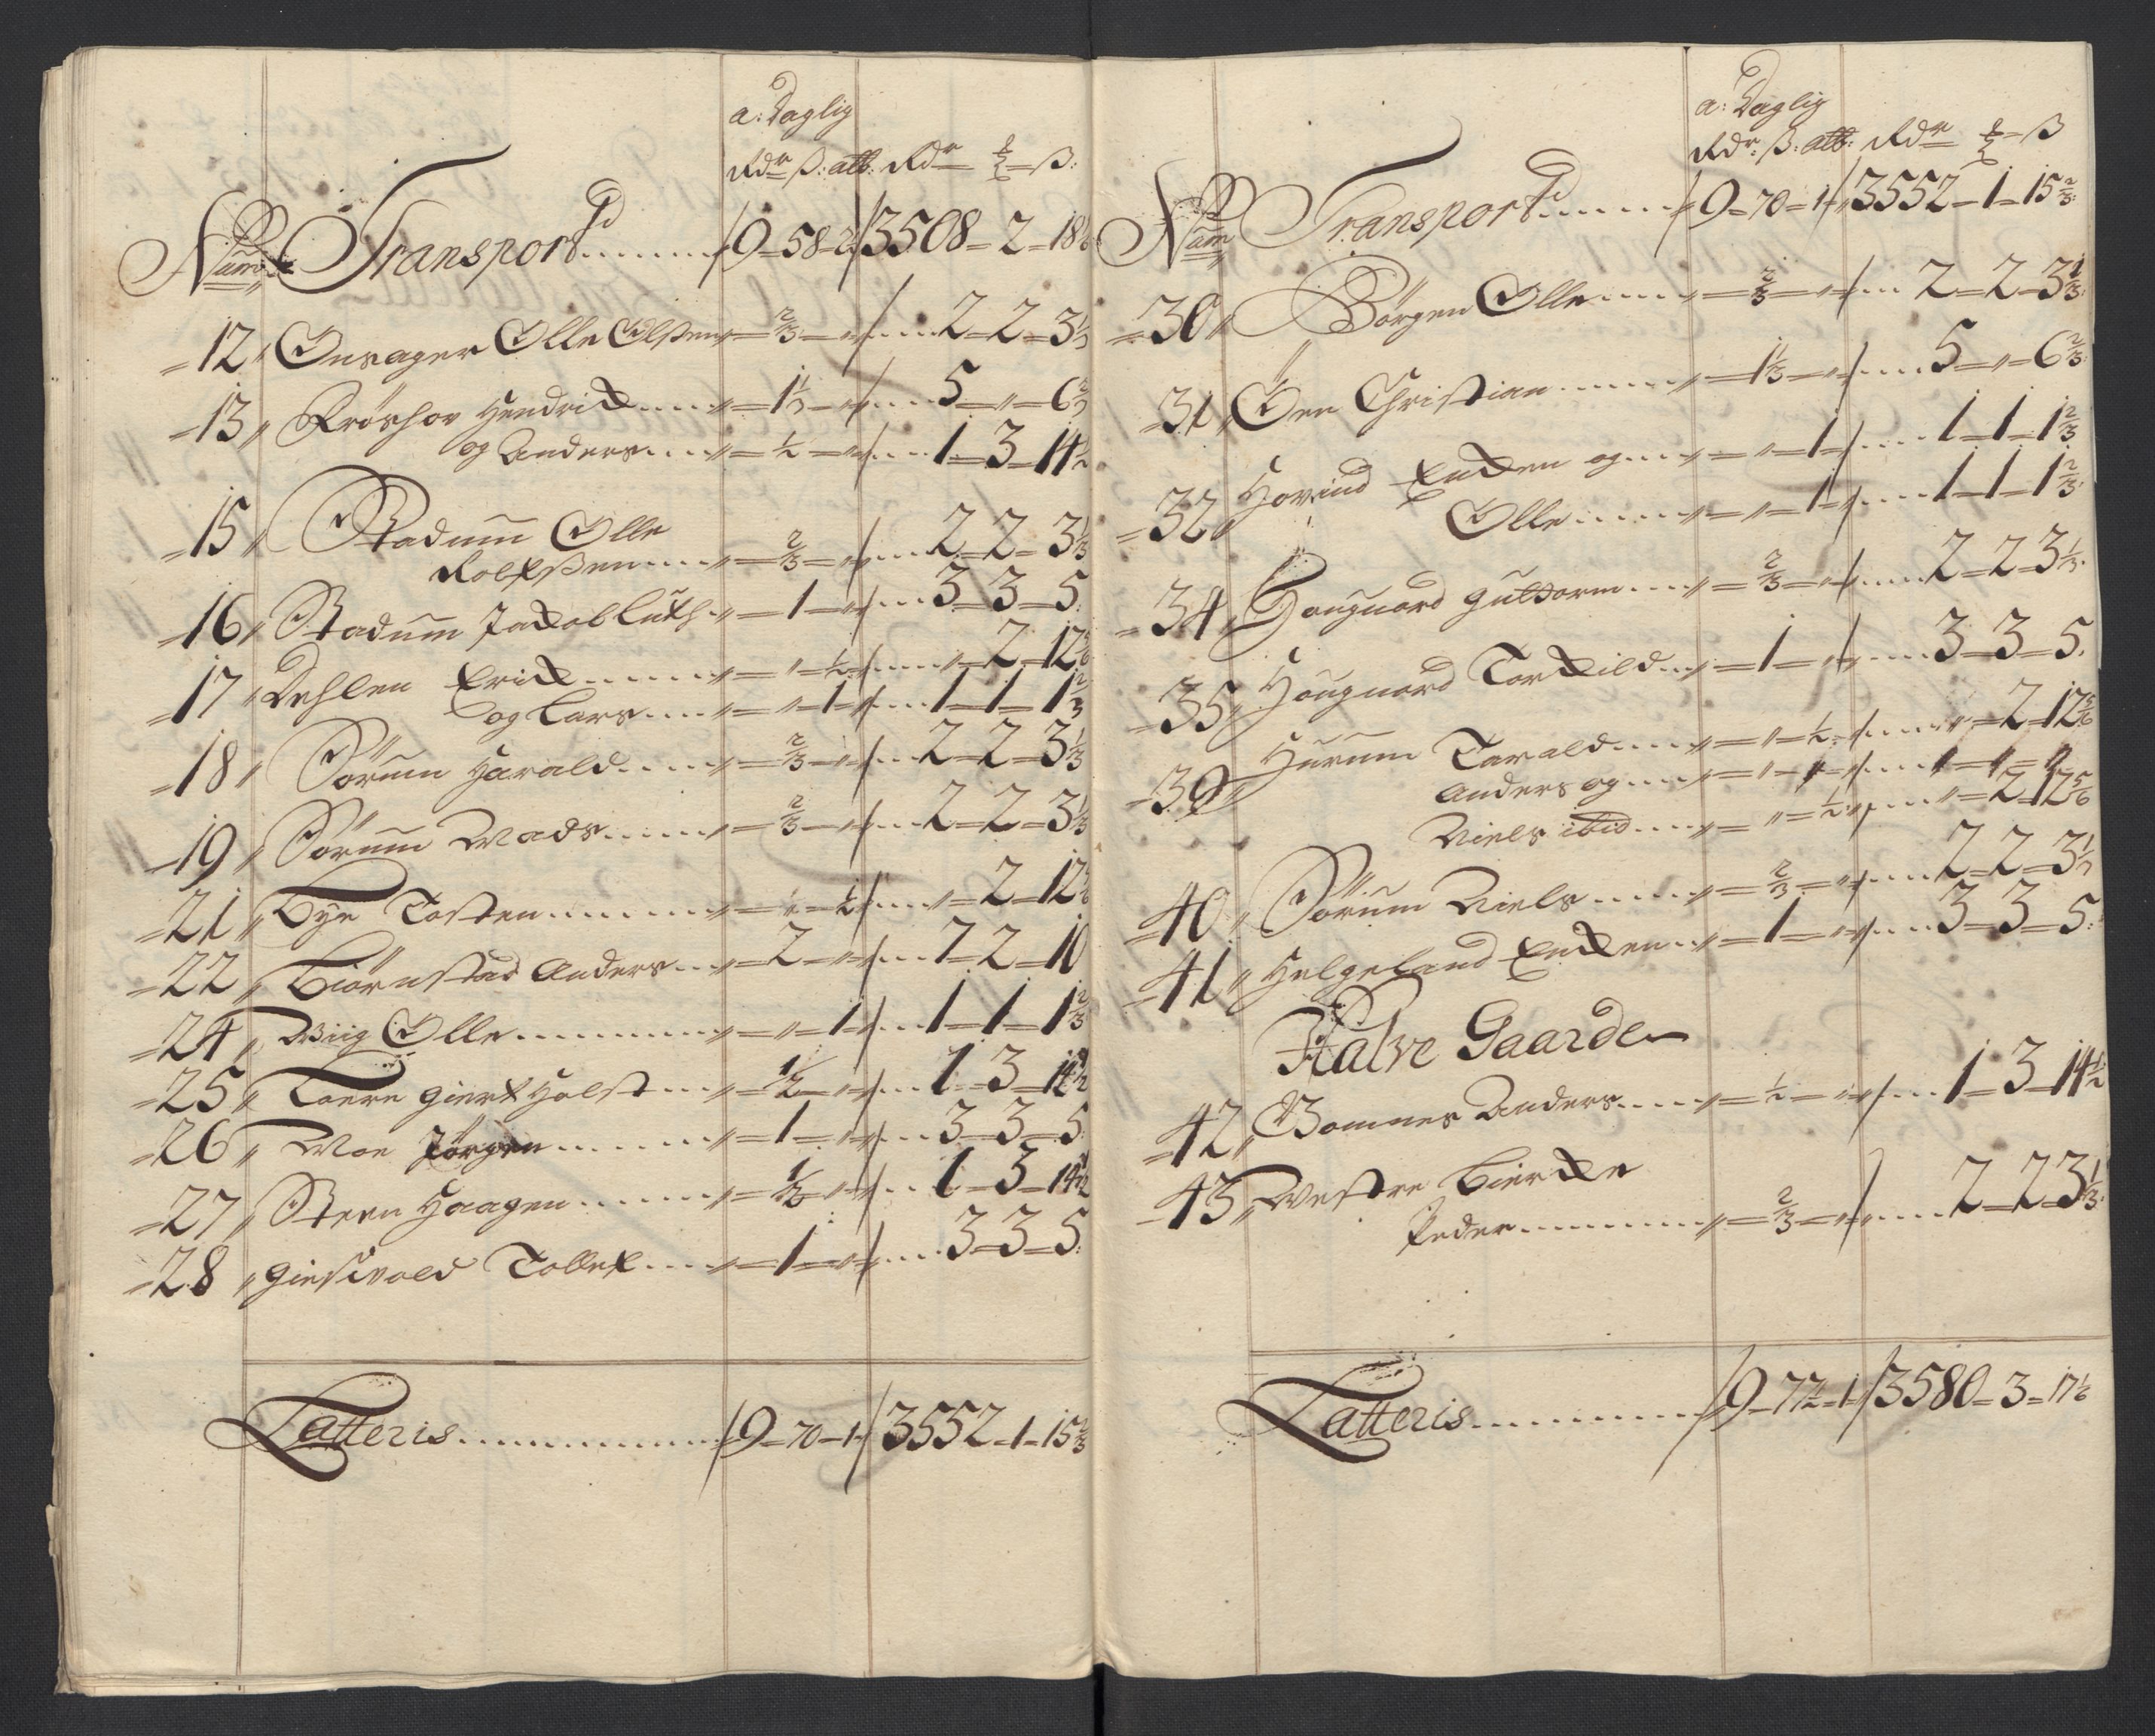 a: Daglig
Rdr ß: alb: Rdr ß:
Num Transport ...... 9 - 58 - 2 3508 - 2 - 18
12 Onsager Olle Olßen 2/3 2 - 2 - 3 1/3
13 Frøshov Hendrich .... 1 1/3 5 - " - 6 2/3
og Anders .... 1/2 1 - 3 - 14 1/2
15 Stadum Olle
Rolfßen .... 2/3 2 - 2 - 3 1/3
16 Stadum Jacob Luth 1 3 - 3 - 5
17 Dehlen Erich .... 1/2 " - 2 - 12 5/6
og Lars .... 1 1 - 1 - 1 2/3
18 Sörum Harald .... 2/3 2 - 2 - 3 1/3
19 Sörum Mads .... 2/3 2 - 2 - 3 1/3
21 Bye Tosten .... 1/2 " - 2 - 12 5/6
22 Biörnstad Anders .. 2 7 - 2 - 10
24 Wiig Olle .... 1 1 - 1 - 1 2/3
25 Toere Giert Holst ... 1/2 1 - 3 - 14 1/2
26 Moe Jörgen .... 1 3 - 3 - 5
27 Steen Haagen .... 1/2 1 - 3 - 14 1/2
28 Giesvold Tollef .... 1 3 - 3 - 5
Latteris .... 9 - 70 - 1 3552 - 1 - 15 2/3
a: Daglig
Rdr: ß: alb: Rdr ß
Num Transport ..... 9 - 70 - 1 3552 - 1 - 15 2/3
30 Börgen Olle .... 2/3 2 - 2 - 3 1/3
31 Öen Christian .... 1 1/3 5 - " - 6 2/3
32 Hovind og ... 1 1 - 1 - 1 2/3
Olle .... 1 1 - 1 - 1 2/3
34 Hougnord Guttorm ... 2/3 2 - 2 - 3 1/3
35 Hougnord Torkild .. 1 3 - 3 - 5
39 Hurum Tarald .... 1/2 " - 2 - 12 5/6
Anders og ...
Niels ibid .... 1/2 " - 2 - 12 5/6
40 Sörum Niels .... 2/3 2 - 2 - 3 1/3
41 Helgeland .. 1 3 - 3 - 5
Halve Gaarder
42 Bomnes Anders .... 1/2 1 - 3 - 14 1/2
43 Westre Bierke
Peder .... 2/3 2 - 2 - 3 1/3
Latteris .... 9 - 77 1/2 - 1 3580 - 3 - 17 1/6